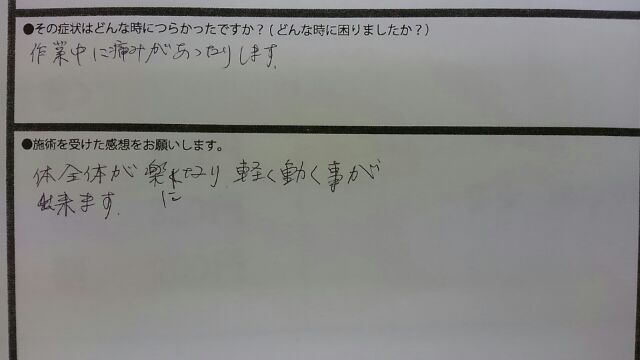 ●その症状はどんな時につらかったですか？(どんな時に困りましたか？)
作業中に痛みがあったりします。
●施術を受けた感想をお願いします。
体全体が楽になり、軽く動く事が
出来ます。